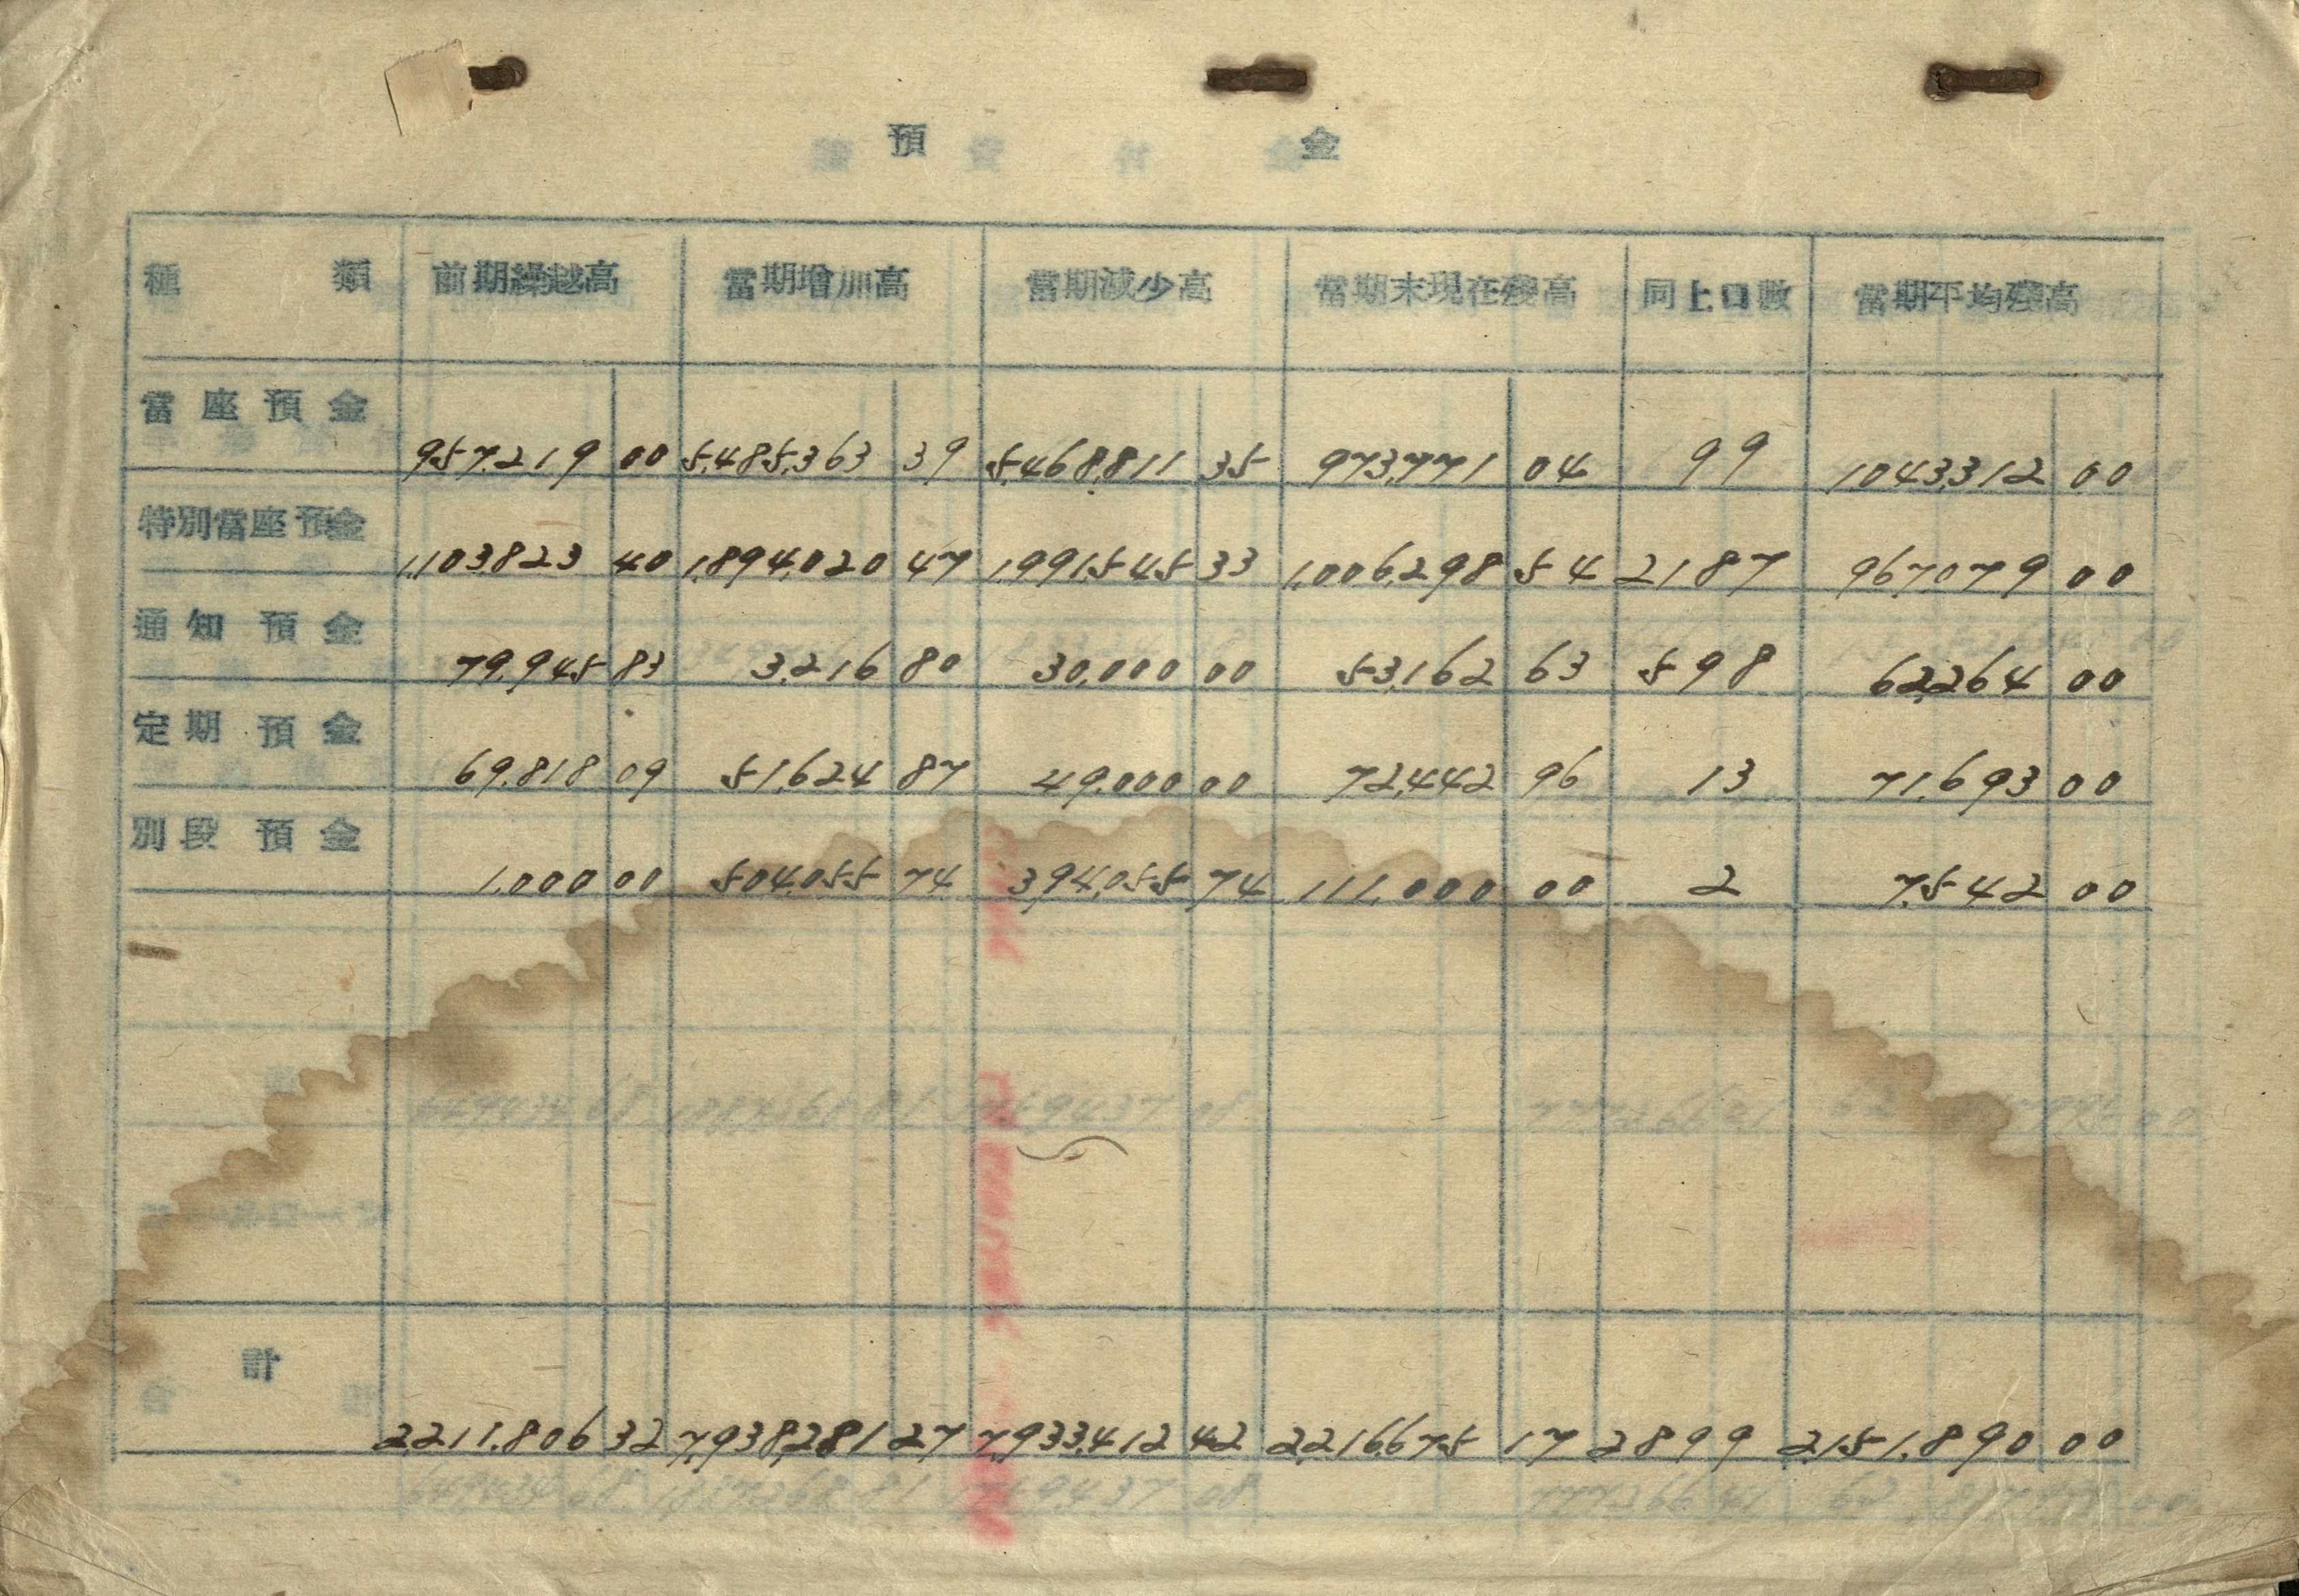 預 金
種類 前期繰越高 當期增加高 當期減少高 當期末現在殘高 同上口數 當期平均殘高
當座預金 957,219 00 5,485,363 39 5,468,811 35 973,771 04 99 1,043,312 00
特別當座預金 1,103,823 40 1,894,020 47 1,991,545 33 1,006,298 54 2187 967,079 00
通知預金 79,945 83 3,216 80 30,000 00 53,162 63 598 62,264 00
定期預金 69,818 09 51,624 87 49,000 00 72,442 96 13 71,693 00
別段預金 1,000 00 504,055 74 394,055 74 111,000 00 2 7,542 00
計 2,211,806 32 7,938,281 27 7,933,412 42 2,216,675 17 2899 2,151,890 00